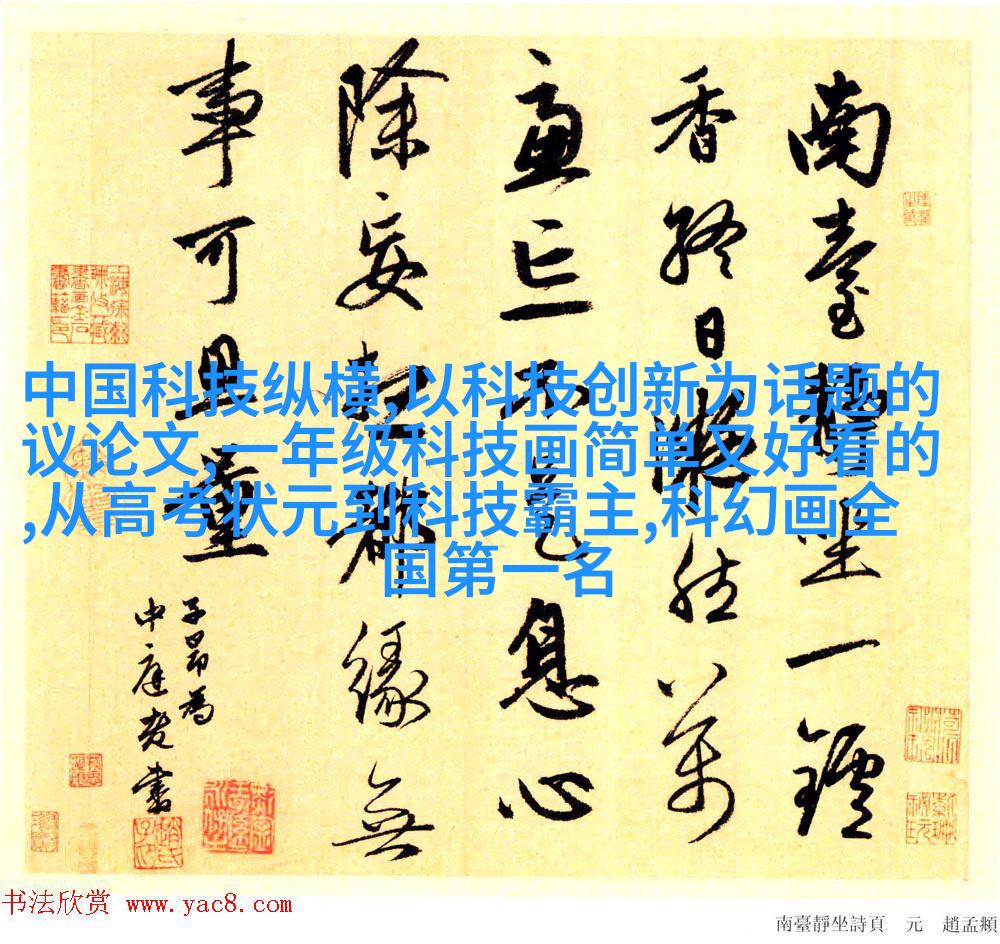 南臺靜坐一鑪
香終日凝然萬
慮亡不是息心
除妄想都緣無
事可思量
子昂為
中庭老書
中国科技纵横,以科技创新为话题的
议论文,一年级科技画简单又好看的
,从高考状元到科技霸主,科幻画全
国第一名
书法欣赏 www.yac8.com
南臺靜坐詩頁 元 趙孟頫